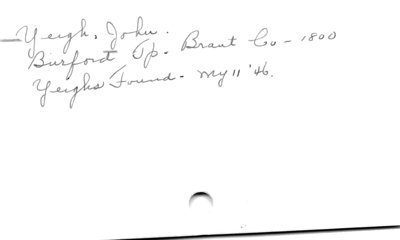 Yeigh, John.
Burford Tp. Brant Co - 1800
Yeighs Found - My 11 '46.